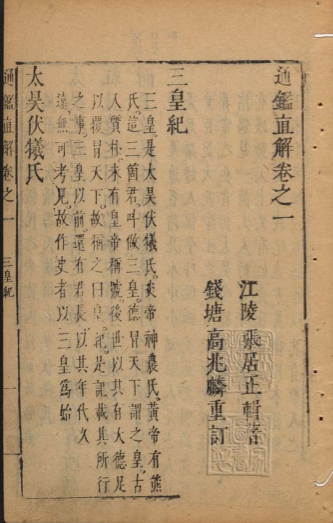 通鑑直解卷之一
江陵張居正輯著
錢塘高兆麟重訂
三皇紀
三皇是太昊伏犧氏炎帝神農氏黃帝有熊
氏這三箇君叫做三皇德冒天下謂之皇古
人質朴未有皇帝稱號後世以其有大德足
以覆冒天下故稱之曰皇紀是記載其所行
之事三皇以前還有君長以其年代久
遠無可考見故作史者以三皇爲始
太昊伏犧氏
通鑑直解卷之一
三皇紀
一